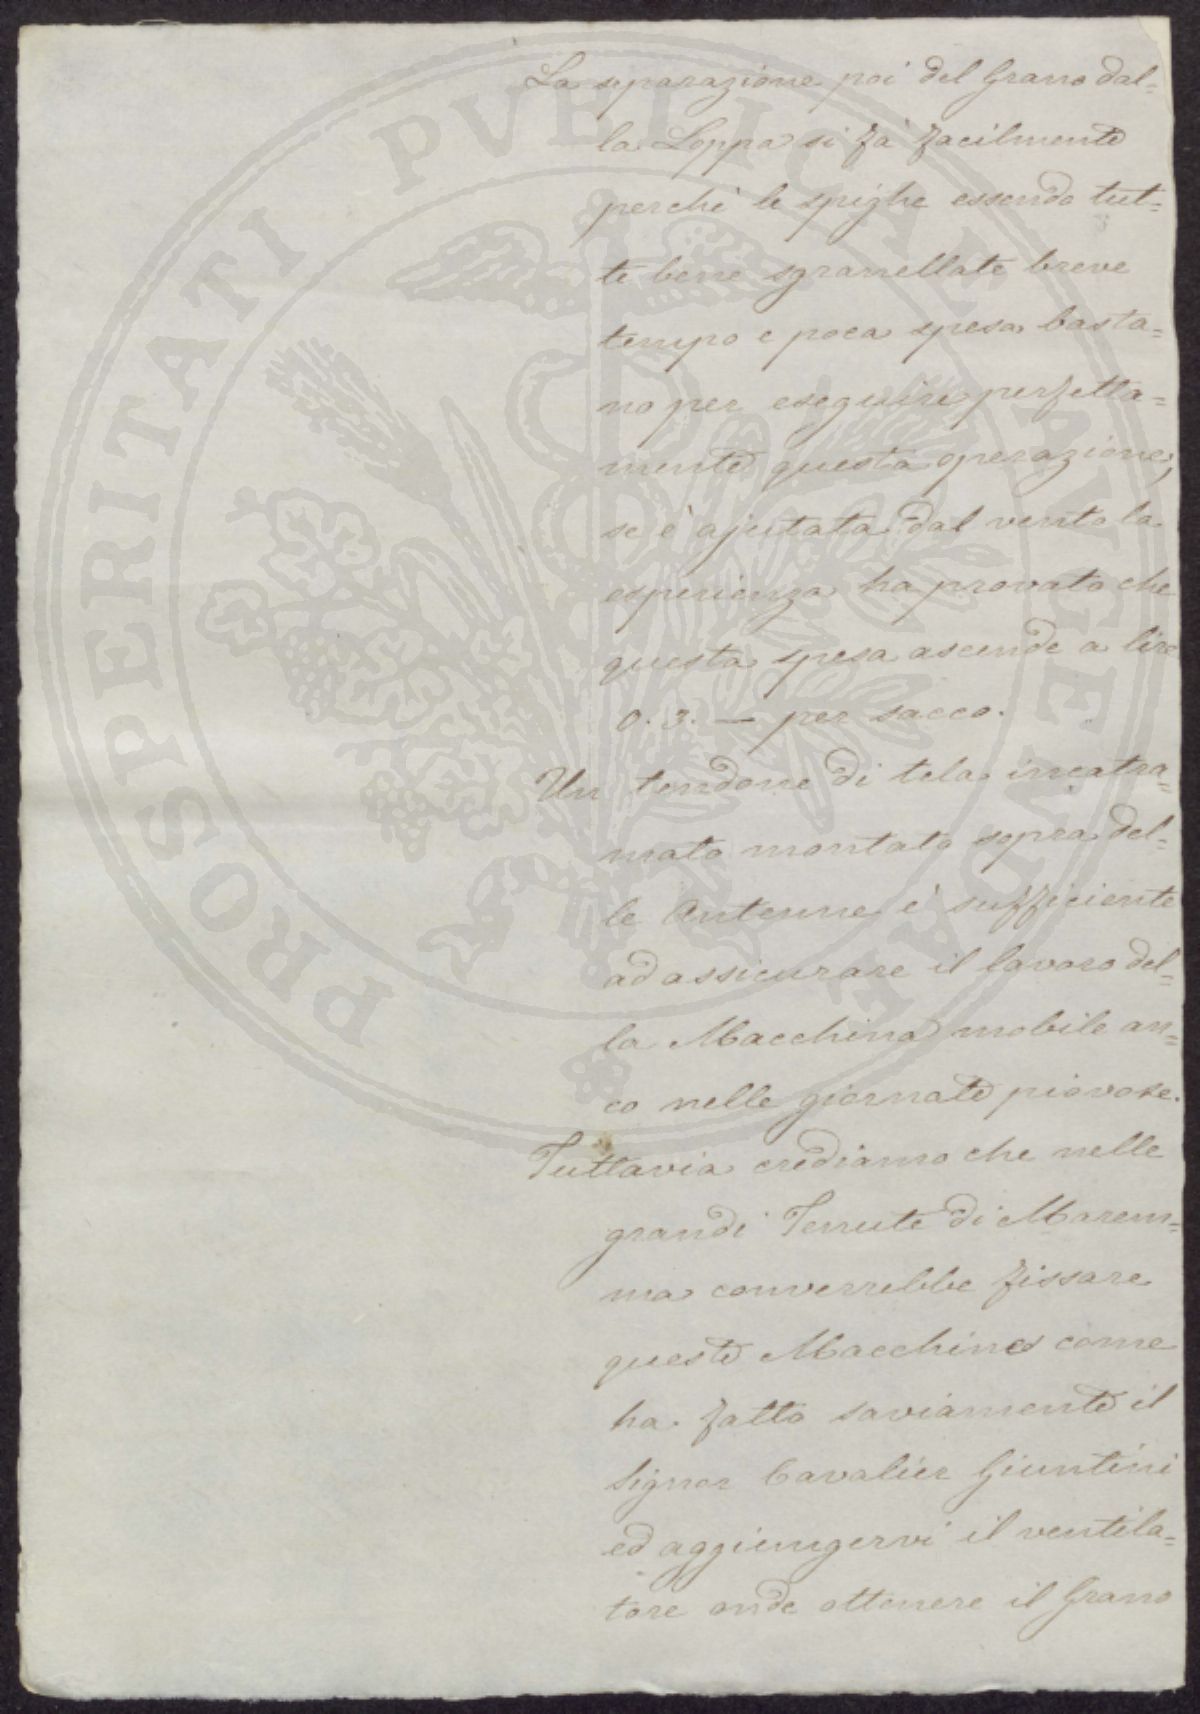 La separazione poi del Grano dal=
la Loppa si fà facilmente
perchè le spighe essendo tut=
te bene sgranellate breve
tempo e poca spesa basta=
no per eseguire perfetta=
mente questa operazione;
se è ajutata dal vento la
esperienza ha provato che
questa spesa ascende a lire
0. 3. — per sacco.
Un tendone di tela incatra=
mato montato sopra del=
le Antenne è sufficiente
ad assicurare il lavoro del=
la Macchina mobile an=
co nelle giornate piovose.
Tuttavia crediamo che nelle
grandi Tenute di Marem=
ma converrebbe fissare
queste Macchine come
ha fatto saviamente il
Signor Cavalier Giuntini
ed aggiungervi il ventila=
tore onde ottenere il Grano
PROSPERITATI PVBLICAE AVGENDAE